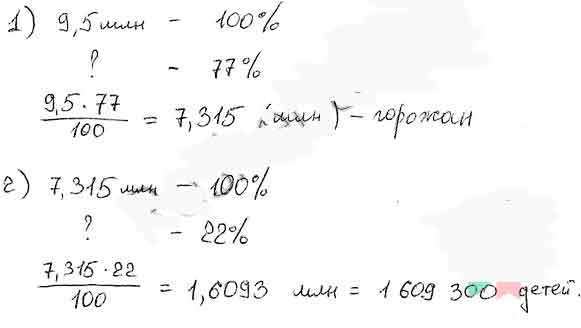 1) 9,5 млн - 100%
? - 77%
9,5 · 77 / 100 = 7,315 (млн) - горожан
2) 7,315 млн - 100%
? - 22%
7,315 · 22 / 100 = 1,6093 млн = 1 609 300 детей.